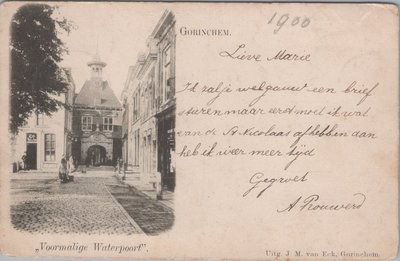 1900
GORINCHEM.
Lieve Marie
Ik zal je wel gauw een brief
sturen maar eerst moet ik wat
van de St Nicolaas afhebben dan
heb ik weer meer tijd
Gegroet
A
„Voormalige Waterpoort”.
Uitg. J. M. van Eck, Gorinchem.